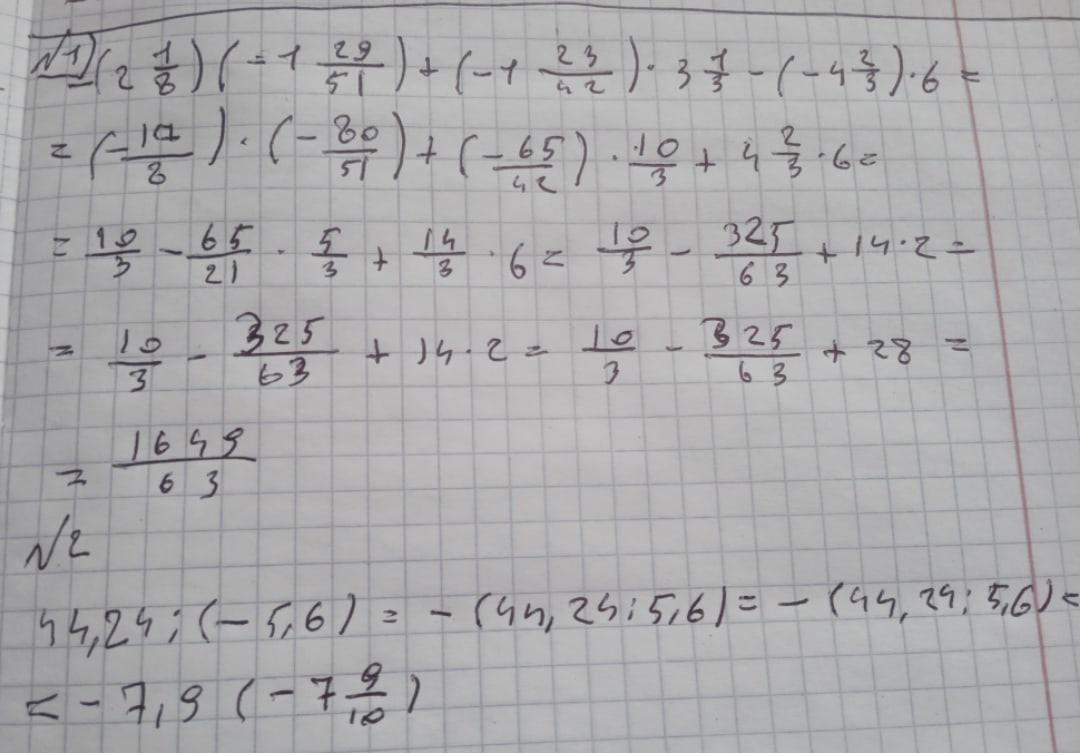 √1) -(2 1/8)(-1 29/51)+(-1 23/42)·3 1/3-(-4 2/3)·6=
=(-17/8)·(-80/51)+(-65/42)·10/3+4 2/3·6=
=10/3-65/21·5/3+14/3·6=10/3-325/63+14·2=
=10/3-325/63+14·2=10/3-325/63+28=
=1649/63
√2
44,24:(-5,6)=-(44,24:5,6)=-(44,24:5,6)=
=-7,9(-7 9/10)